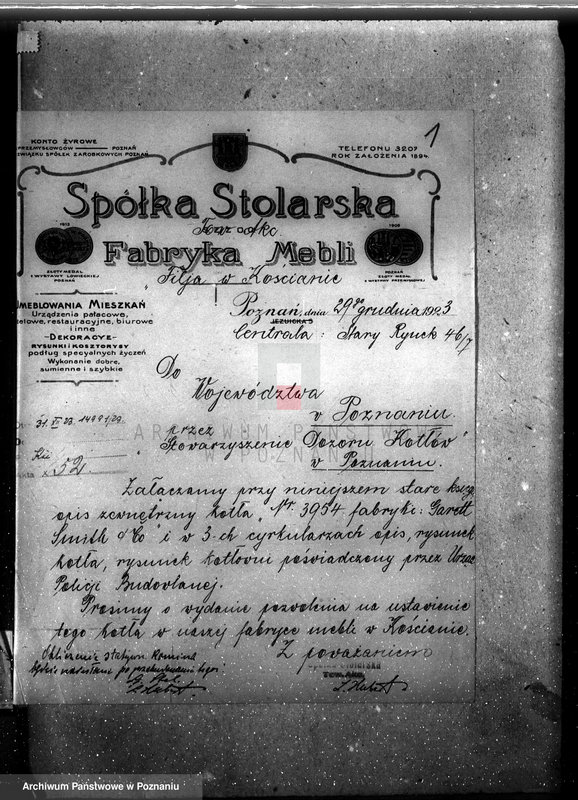 1
KONTO ŻYROWE
PRZEMYSŁOWCÓW — POZNAŃ
ZWIĄZKU SPÓŁEK ZAROBKOWYCH POZNAŃ
TELEFONU 3207
ROK ZAŁOŻENIA 1894.
Spółka Stolarska
Tow. Akc.
Fabryka Mebli
1913
1908
ZŁOTY MEDAL
Z WYSTAWY ŁOWIECKIEJ
POZNAŃ
POZNAŃ
ZŁOTY MEDAL
Z WYSTAWY PRZEMYSŁOWEJ
Filja w Kościanie
UMEBLOWANIA MIESZKAŃ
Urządzenia pałacowe,
hotelowe, restauracyjne, biurowe
i inne
-DEKORACYE-
RYSUNKI I KOSZTORYSY
podług specyalnych życzeń
Wykonanie dobre,
sumienne i szybkie
Poznań, dnia 29go grudnia 1923
JEZUICKA 5
Centrala: Stary Rynek 46/7
Do
Województwa
w Poznaniu.
przez
"Stowarzyszenie Dozoru Kotłów"
w Poznaniu.
31. VII 23. 1499
52
ARCHIWUM PAŃSTWOWE
W POZNANIU
Załączamy przy niniejszem stare księgi
opis zewnętrzny kotła "Nr. 3954 fabryki: Garett
Smith & Co" i w 3-ch cyrkularzach opis, rysunek
kotła, rysunek kotłowni poświadczony przez Urząd
Policji Budowlanej.
Prosimy o wydanie pozwolenia na ustawienie
tego kotła w naszej fabryce mebli w Kościanie.
Z poważaniem
Obliczenie statyczn. komina
Spółka Stolarska
Tow. Akc.
Archiwum Państwowe w Poznaniu